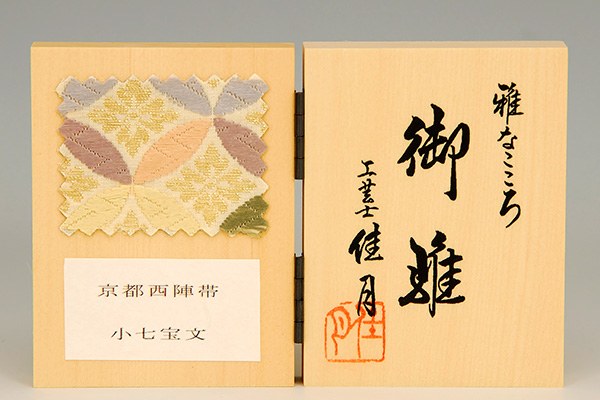 雅なこころ
御雛
工芸士 佳月
佳月
京都西陣帯
小七宝文